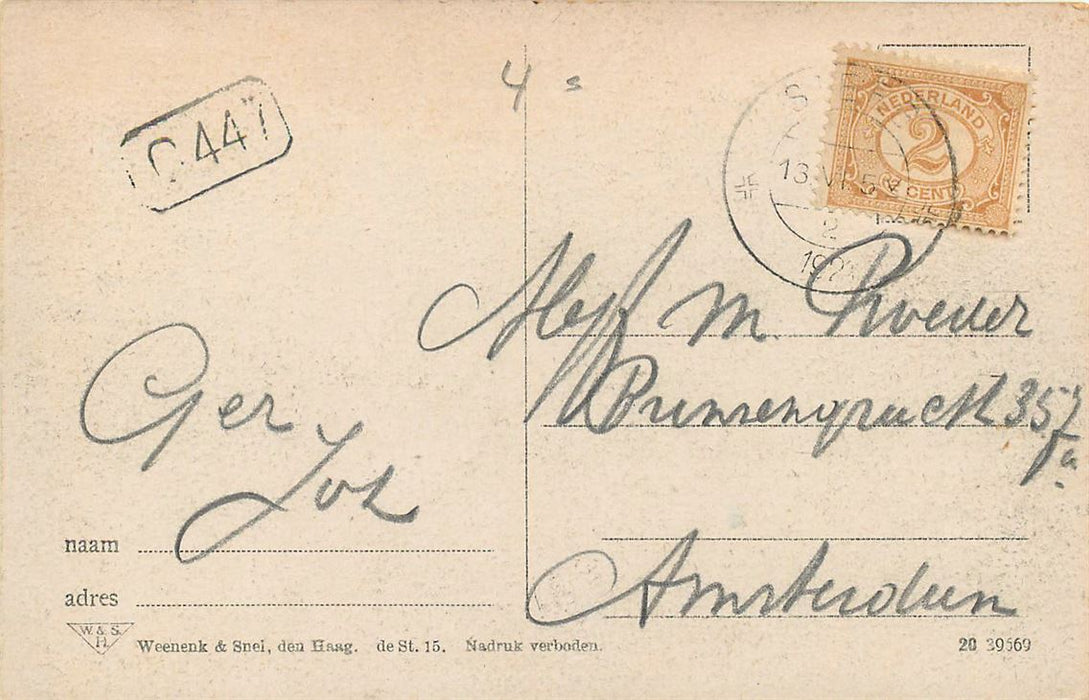 C 447
4 s
NEDERLAND
2
CENT
13.VI 5
2
192
Ger
Joh
M. Roeder
Prinsengracht 357
Amsterdam
naam
adres
W. & S.
H.
Weenenk & Snel, den Haag. de St. 15. Nadruk verboden.
20 39569